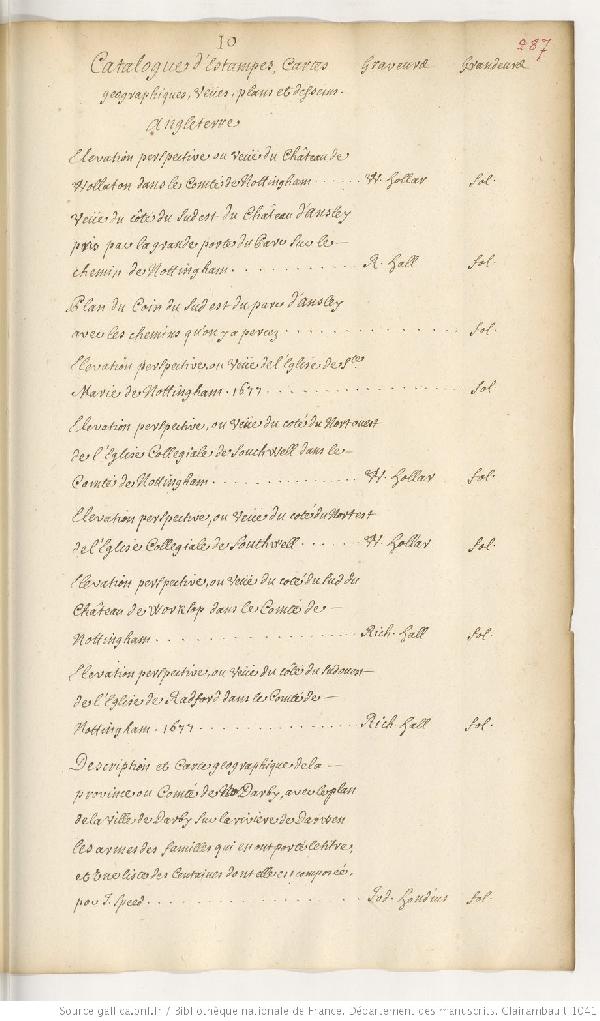 10
287
Catalogue d'Estampes, Cartes Graveurs Grandeurs
geographiques, Veües, plans et desseins.
Angleterre
Elevation perspective ou Veüe du Château de
Wollaton dans le Comté de Nottingham . . . . . . W. Hollar fol.
Veüe du côté du Sud est du Château d'Ansley
pris par la grande porte du Parc sur le
chemin de Nottingham . . . . . . . . . . R. Hall fol.
Plan du Coin du Sud est du parc d'Ansley
avec les chemins qu'on y a percez . . . . . . . . . . . . . . fol.
Elevation perspective ou Veüe de l'Eglise de Ste
Marie de Nottingham. 1677 . . . . . . . . . . . . . . . . fol
Elevation perspective, ou Veüe du coté du Nort ouest
de l'Eglise Collegiale de Souchwell dans le
Comté de Nottingham . . . . . . . . . . . . . . . W. Hollar fol.
Elevation perspective, ou Veüe du coté du Nort est
de l'Eglise Collegiale de Southwell . . . . . . W. Hollar fol.
Elevation perspective, ou Veüe du coté du Sud du
Château de Worksop dans le Comté de
Nottingham . . . . . . . . . . . . . . . . . . Rich. Hall fol.
Elevation perspective, ou Veüe du côté du Sudouest
de l'Eglise de Radford dans le Comté de
Nottingham. 1677 . . . . . . . . . . . . . . Rich Hall fol.
Description et Carte geographique de la
province ou Comté de Darby, avec le plan
de la ville de Darby sur la riviere de Darwen
les armes des familles qui en ont porté le titre,
et une liste des Centaines dont elle est composée.
par J. Speed . . . . . . . . . . . . . . . . . . . . Jod. Hondius fol.
Source gallica.bnf.fr / Bibliothèque nationale de France. Département des manuscrits. Clairambault 1041